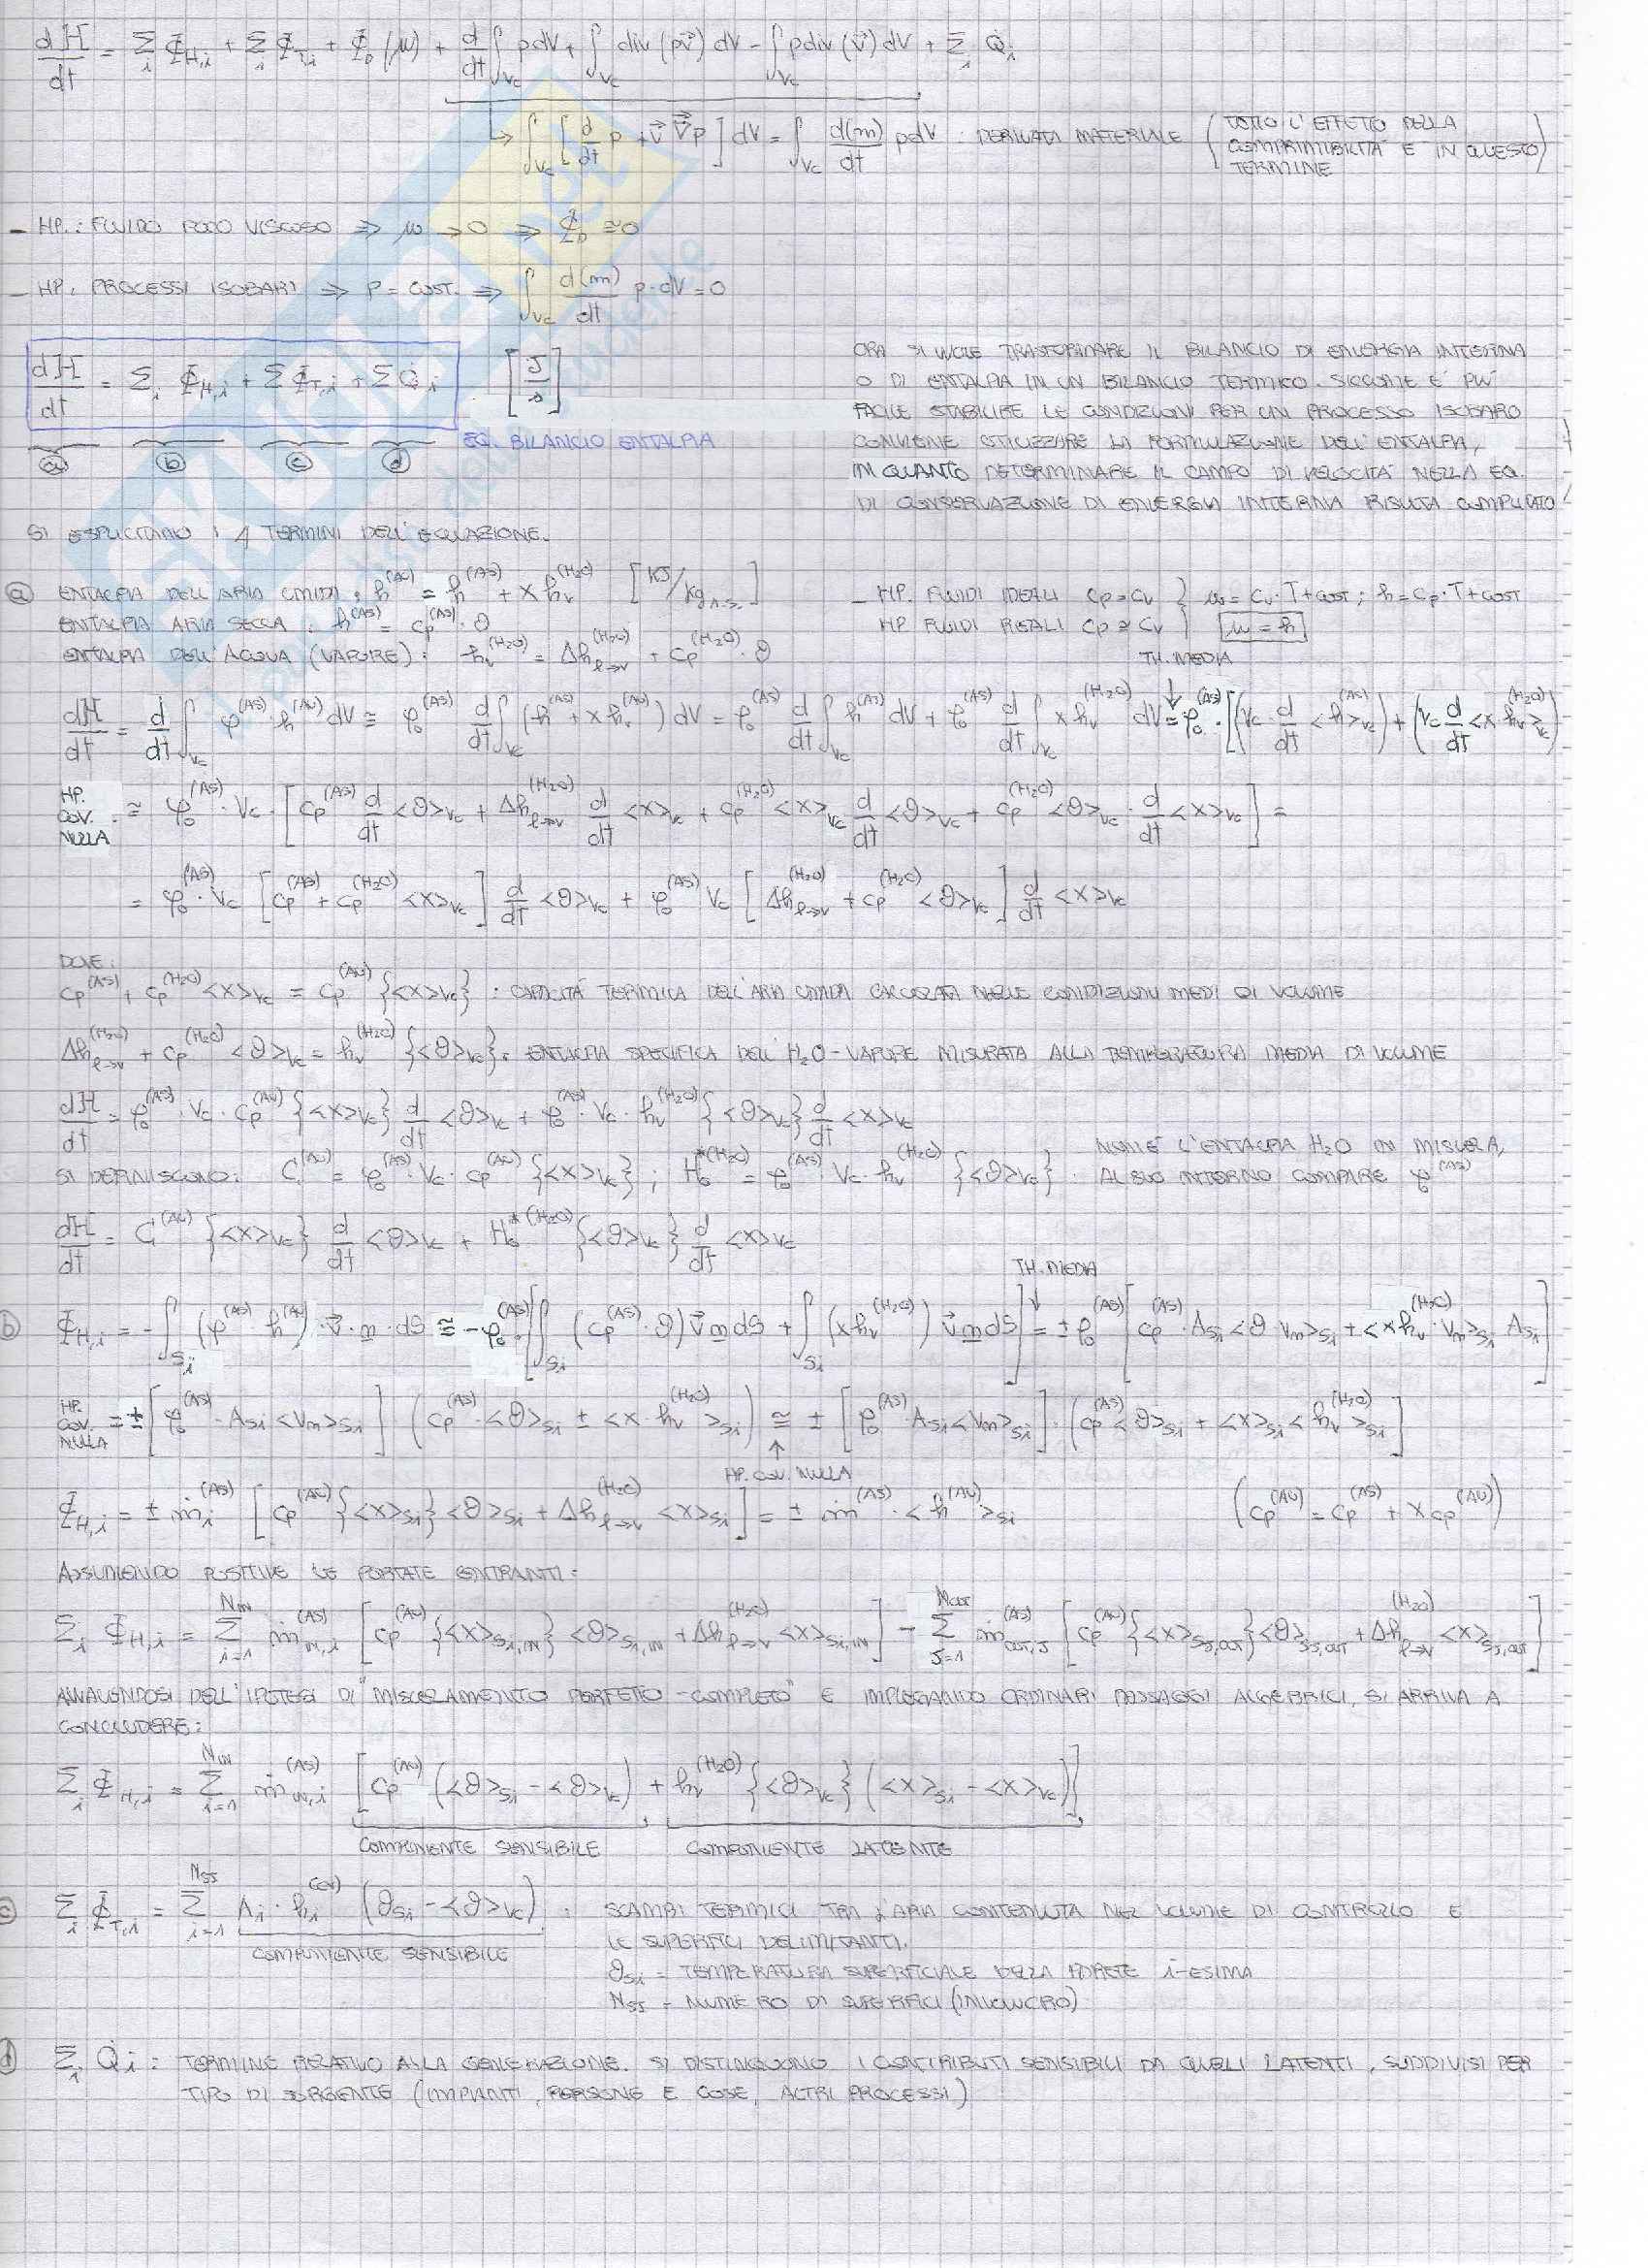 dH/dt = Σ_i Φ_H,i + Σ_i Φ_T,i + Φ_D (μ) + d/dt ∫_Vc p dV + ∫_Vc div (p v⃗) dV − ∫_Vc p div (v⃗) dV + Σ_i Q̇_i
↳ ∫_Vc [ d/dt p + v⃗ ∇⃗p ] dV = ∫_Vc d(m)/dt p dV : DERIVATA MATERIALE ( TUTTO L'EFFETTO DELLA COMPRIMIBILITÀ È IN QUESTO TERMINE )
– HP.: FLUIDO POCO VISCOSO ⇒ μ → 0 ⇒ Φ_D ≅ 0
– HP: PROCESSI ISOBARI ⇒ P = COST. ⇒ ∫_Vc d(m)/dt p · dV = 0
dH/dt = Σ_i Φ_H,i + Σ Φ_T,i + Σ Q̇_i [J/s]
EQ. BILANCIO ENTALPIA
ⓐ ⓑ ⓒ ⓓ
ORA SI VUOLE TRASFORMARE IL BILANCIO DI ENERGIA INTERNA
O DI ENTALPIA IN UN BILANCIO TERMICO. SICCOME È PIÙ
FACILE STABILIRE LE CONDIZIONI PER UN PROCESSO ISOBARO
CONVIENE UTILIZZARE LA FORMULAZIONE DELL'ENTALPIA,
IN QUANTO DETERMINARE IL CAMPO DI VELOCITÀ NELLA EQ.
DI CONSERVAZIONE DI ENERGIA INTERNA RISULTA COMPLICATO
SI ESPLICITANO I 4 TERMINI DELL'EQUAZIONE.
ⓐ ENTALPIA DELL'ARIA UMIDA : h^(AU) = h^(AS) + x h_v^(H2O) [KJ/Kg_A.S.]
ENTALPIA ARIA SECCA : h^(AS) = cp^(AS) · θ
ENTALPIA DELL'ACQUA (VAPORE) : h_v^(H2O) = Δh_l→v^(H2O) + cp^(H2O) · θ
– HP. FLUIDI IDEALI cp = cv } u = cv · T + cost ; h = cp · T + cost
HP FLUIDI REALI cp ≅ cv } u = h
TH. MEDIA
dH/dt = d/dt ∫_Vc ρ^(AS) h^(AU) dV ≅ ρ0^(AS) d/dt ∫_Vc (h^(AS) + x h_v^(AU)) dV = ρ0^(AS) d/dt ∫_Vc h^(AS) dV + ρ0^(AS) d/dt ∫_Vc x h_v^(H2O) dV = ρ0^(AS) · [(Vc · d/dt <h>_Vc^(AS)) + (Vc d/dt <x · h_v^(H2O)>_Vc)]
HP. COV. NULLA ≅ ρ0^(AS) · Vc · [ cp^(AS) d/dt <θ>_Vc + Δh_l→v^(H2O) d/dt <x>_Vc + cp^(H2O) <x>_Vc d/dt <θ>_Vc + cp^(H2O) <θ>_Vc · d/dt <x>_Vc ] =
= ρ0^(AS) · Vc [ cp^(AS) + cp^(H2O) <x>_Vc ] d/dt <θ>_Vc + ρ0^(AS) Vc [ Δh_l→v^(H2O) + cp^(H2O) <θ>_Vc ] d/dt <x>_Vc
DOVE:
cp^(AS) + cp^(H2O) <x>_Vc = cp^(AU) {<x>_Vc} : CAPACITÀ TERMICA DELL'ARIA UMIDA CALCOLATA NELLE CONDIZIONI MEDI DI VOLUME
Δh_l→v^(H2O) + cp^(H2O) <θ>_Vc = h_v^(H2O) {<θ>_Vc} : ENTALPIA SPECIFICA DELL'H2O-VAPORE MISURATA ALLA TEMPERATURA MEDIA DI VOLUME
dH/dt = ρ0^(AS) · Vc · cp^(AU) {<x>_Vc} d/dt <θ>_Vc + ρ0^(AS) · Vc · h_v^(H2O) {<θ>_Vc} d/dt <x>_Vc
SI DEFINISCONO: C^(AU) = ρ0^(AS) · Vc · cp^(AU) {<x>_Vc} ; H0*^(H2O) = ρ0^(AS) · Vc · h_v^(H2O) {<θ>_Vc} : NON È L'ENTALPIA H2O IN MISCELA, AL SUO INTERNO COMPARE ρ0^(AS)
dH/dt = C^(AU) {<x>_Vc} d/dt <θ>_Vc + H0*^(H2O) {<θ>_Vc} d/dt <x>_Vc
TH. MEDIA
ⓑ Φ_H,i = − ∫_Si (ρ^(AS) h^(AU)) · v⃗ · n · dS ≅ −ρ0^(AS) · [ ∫_Si (cp^(AS) · θ) v⃗ n dS + ∫_Si (x h_v^(H2O)) v⃗ n dS ] = ± ρ0^(AS) [ cp^(AS) · A_Si <θ v_n>_Si + <x h_v^(H2O) · v_n>_Si A_Si ]
HP. COV. NULLA = ± [ ρ0^(AS) · A_Si <v_n>_Si ] ( cp^(AS) · <θ>_Si ± <x · h_v^(H2O)>_Si ) ≅ ± [ ρ0^(AS) · A_Si <v_n>_Si ] · ( cp^(AS) <θ>_Si + <x>_Si <h_v^(H2O)>_Si ]
HP. COV. NULLA
Φ_H,i = ± ṁ_i^(AS) [ cp^(AU) {<x>_Si} <θ>_Si + Δh_l→v^(H2O) <x>_Si ] = ± ṁ^(AS) · <h^(AU)>_Si ( cp^(AU) = cp^(AS) + x cp^(AU) )
ASSUMENDO POSITIVE LE PORTATE ENTRANTI:
Σ_i Φ_H,i = Σ_{i=1}^{N_IN} ṁ_IN,i^(AS) [ cp^(AU) {<x>_Si,IN} <θ>_Si,IN + Δh_l→v^(H2O) <x>_Si,IN ] − Σ_{J=1}^{N_OUT} ṁ_OUT,J^(AS) [ cp^(AU) {<x>_SJ,OUT} <θ>_SJ,OUT + Δh_l→v^(H2O) <x>_SJ,OUT ]
AVVALENDOSI DELL'IPOTESI DI "MISCELAMENTO PERFETTO-COMPLETO" E IMPIEGANDO ORDINARI PASSAGGI ALGEBRICI, SI ARRIVA A
CONCLUDERE:
Σ_i Φ_H,i = Σ_{i=1}^{N_IN} ṁ_IN,i^(AS) [ cp^(AU) (<θ>_Si − <θ>_Vc) + h_v^(H2O) {<θ>_Vc} (<x>_Si − <x>_Vc) ]
COMPONENTE SENSIBILE COMPONENTE LATENTE
ⓒ Σ_i Φ_T,i = Σ_{i=1}^{N_SJ} A_i · h_i^(cv) (θ_Si − <θ>_Vc) : SCAMBI TERMICI TRA L'ARIA CONTENUTA NEL VOLUME DI CONTROLLO E
COMPONENTE SENSIBILE
LE SUPERFICI DELIMITANTI.
θ_Si = TEMPERATURA SUPERFICIALE DELLA PARETE i-ESIMA
N_SJ = NUMERO DI SUPERFICI (INVOLUCRO)
ⓓ Σ_i Q̇_i : TERMINE RELATIVO ALLA GENERAZIONE. SI DISTINGUONO I CONTRIBUTI SENSIBILI DA QUELLI LATENTI, SUDDIVISI PER
TIPO DI SORGENTE (IMPIANTI, PERSONE E COSE, ALTRI PROCESSI)